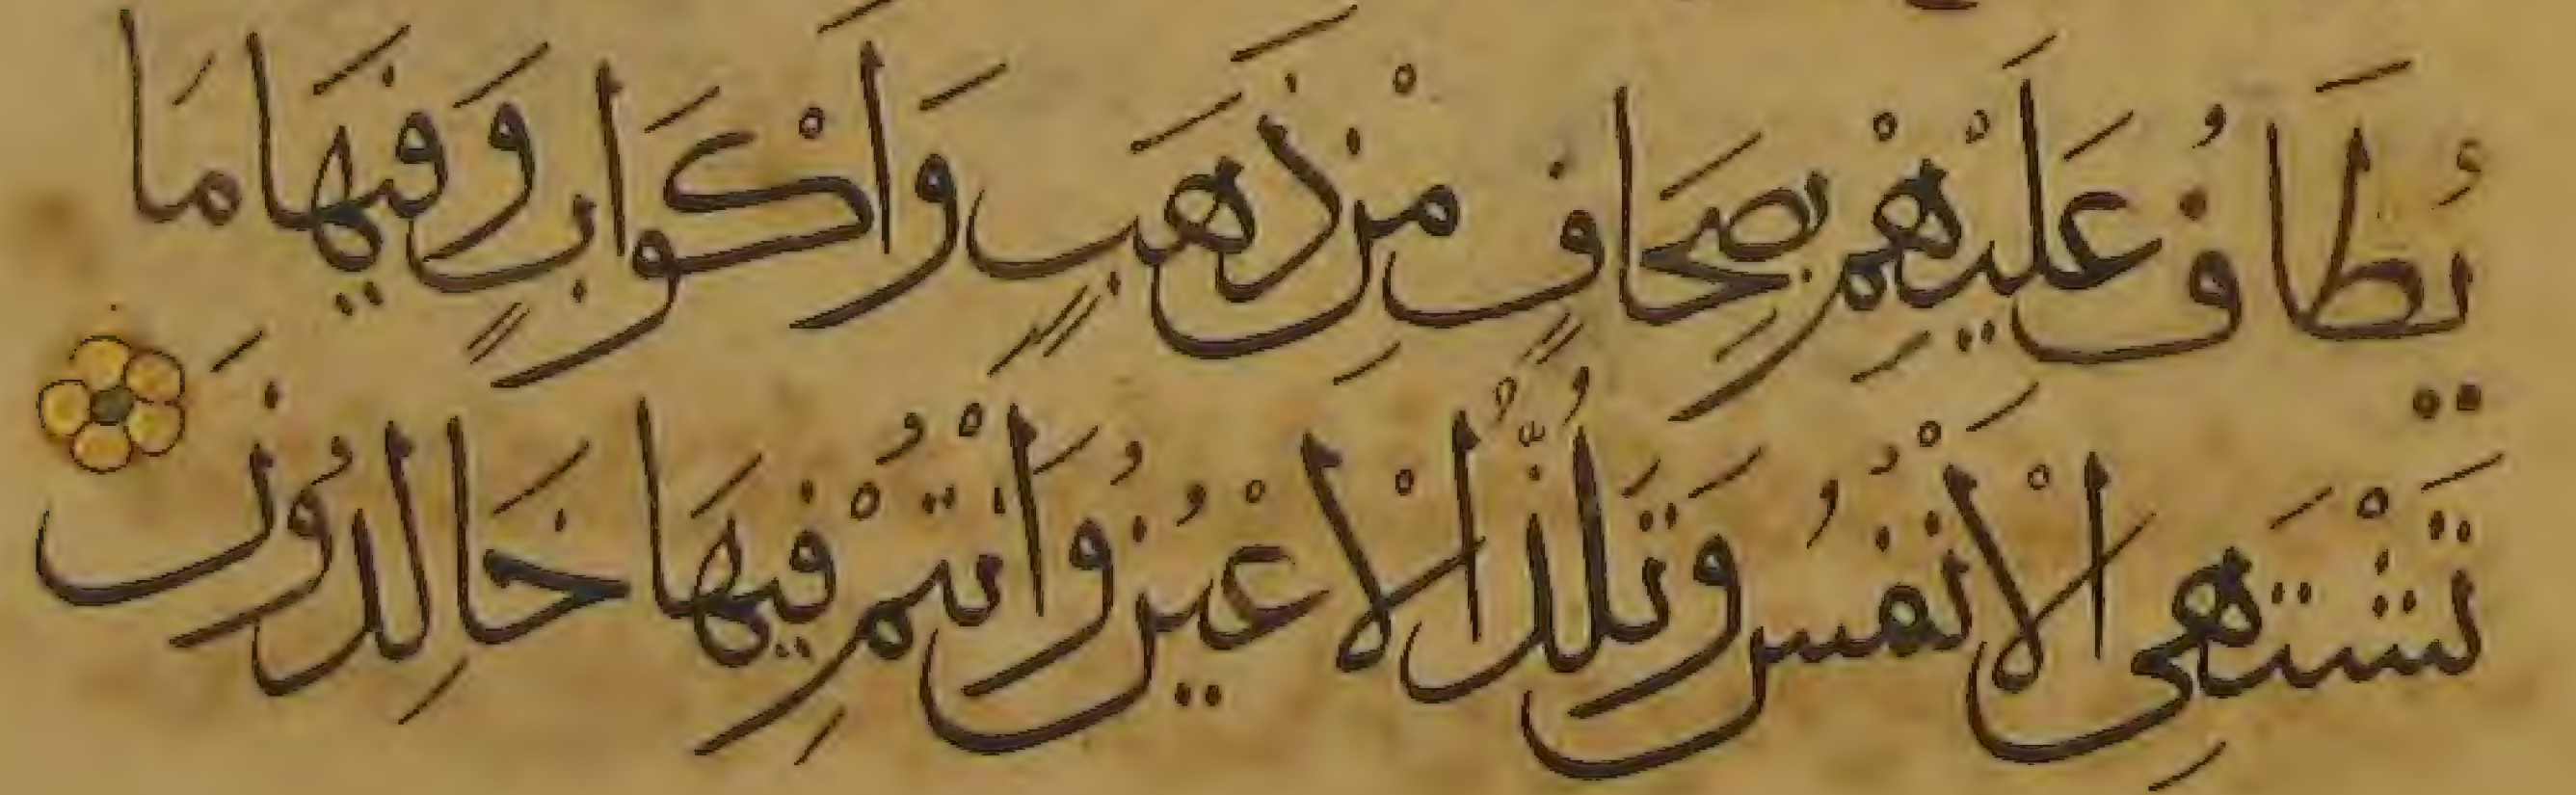 يُطَافُ عَلَيْهِمْ بِصِحَافٍ مِنْ ذَهَبٍ وَاَكْوَابٍ وَفِيهَا مَا
تَشْتَهِى الْاَنْفُسُ وَتَلَذُّ الْاَعْيُنُ وَاَنْتُمْ فِيهَا خَالِدُونَ